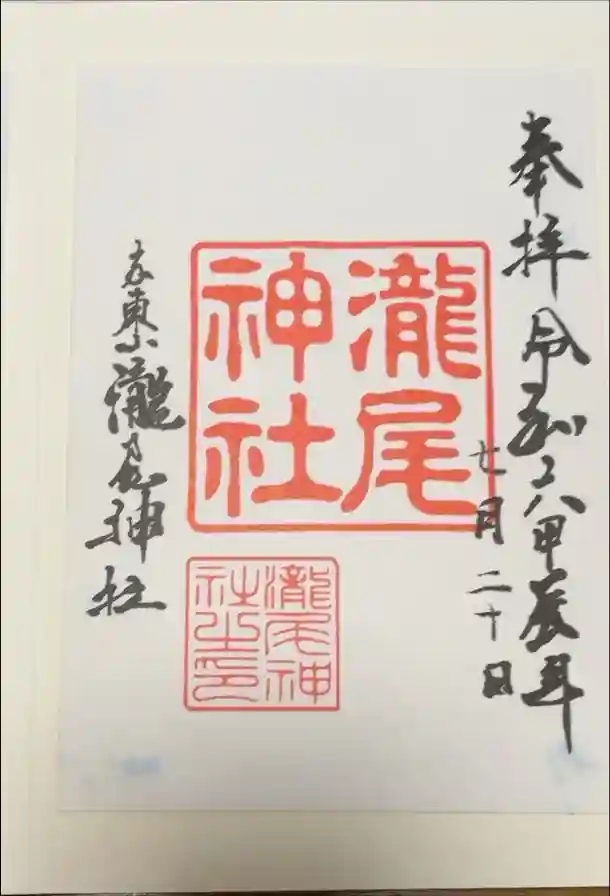 奉拝 令和六甲辰年
七月二十日
瀧尾
神社
瀧尾神
社之印
京東山瀧尾神社